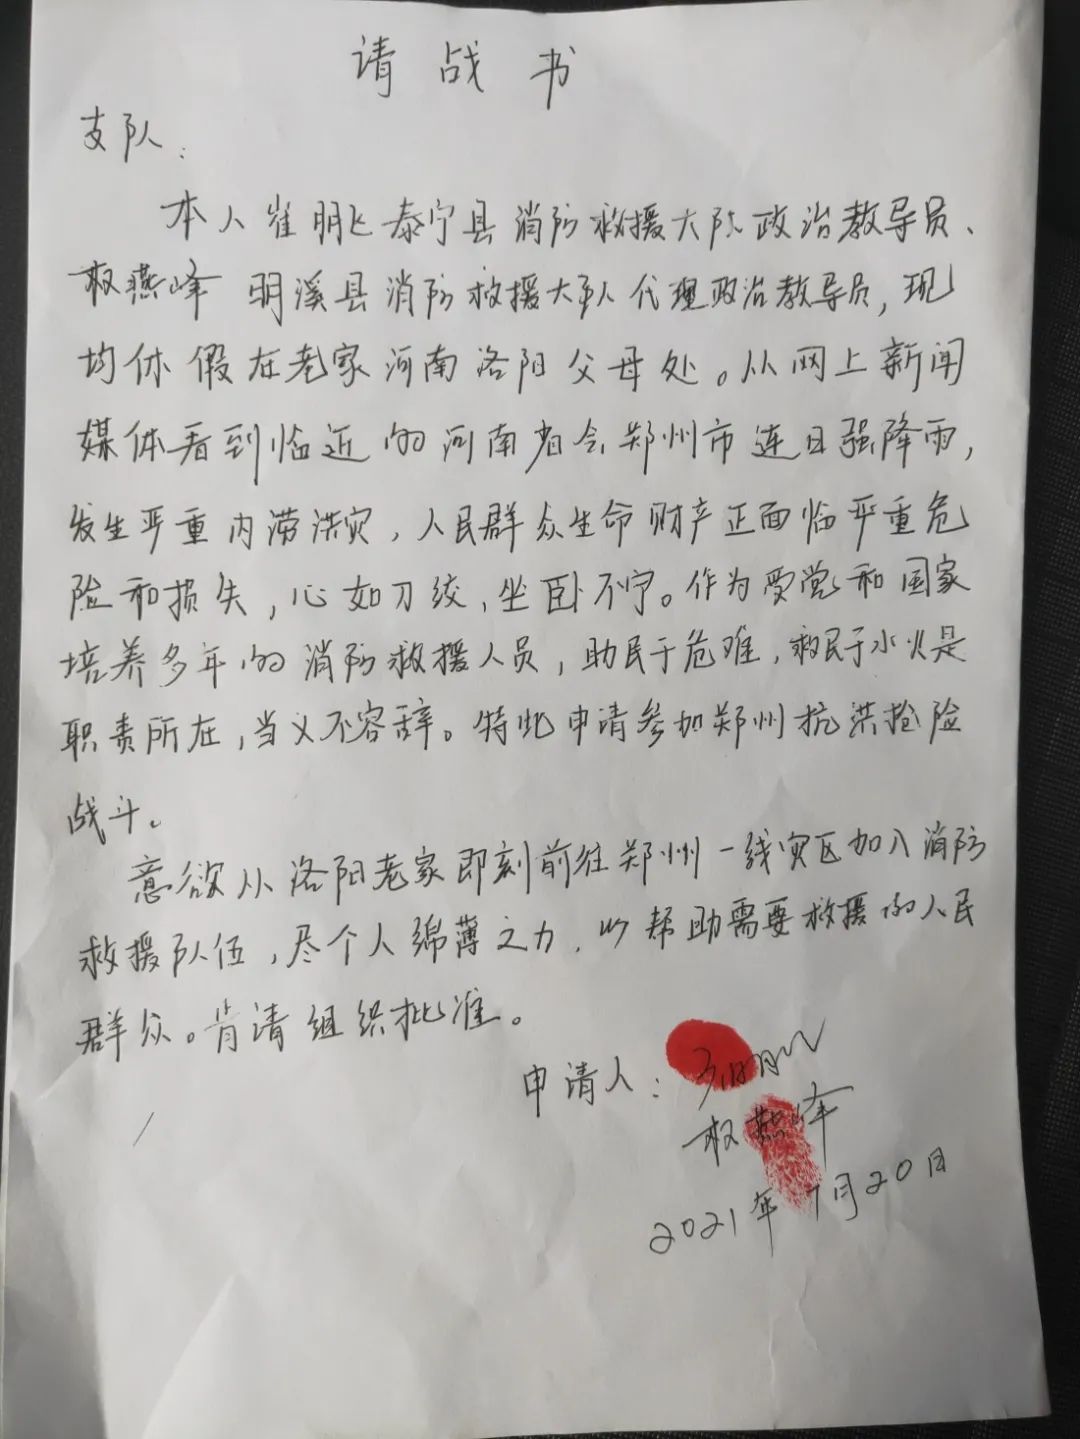 请战书
支队：
本人崔鹏飞泰宁县消防救援大队政治教导员、
权燕峰 明溪县消防救援大队代理政治教导员，现
均休假在老家河南洛阳父母处。从网上新闻
媒体看到临近的河南省会郑州市连日强降雨，
发生严重内涝洪灾，人民群众生命财产正面临严重危
险和损失，心如刀绞，坐卧不宁。作为受党和国家
培养多年的消防救援人员，助民于危难，救民于水火是
职责所在，当义不容辞。特此申请参加郑州抗洪抢险
战斗。
意欲从洛阳老家即刻前往郑州一线灾区加入消防
救援队伍，尽个人绵薄之力，以帮助需要救援的人民
群众。肯请组织批准。
申请人：
权燕峰
2021年7月20日